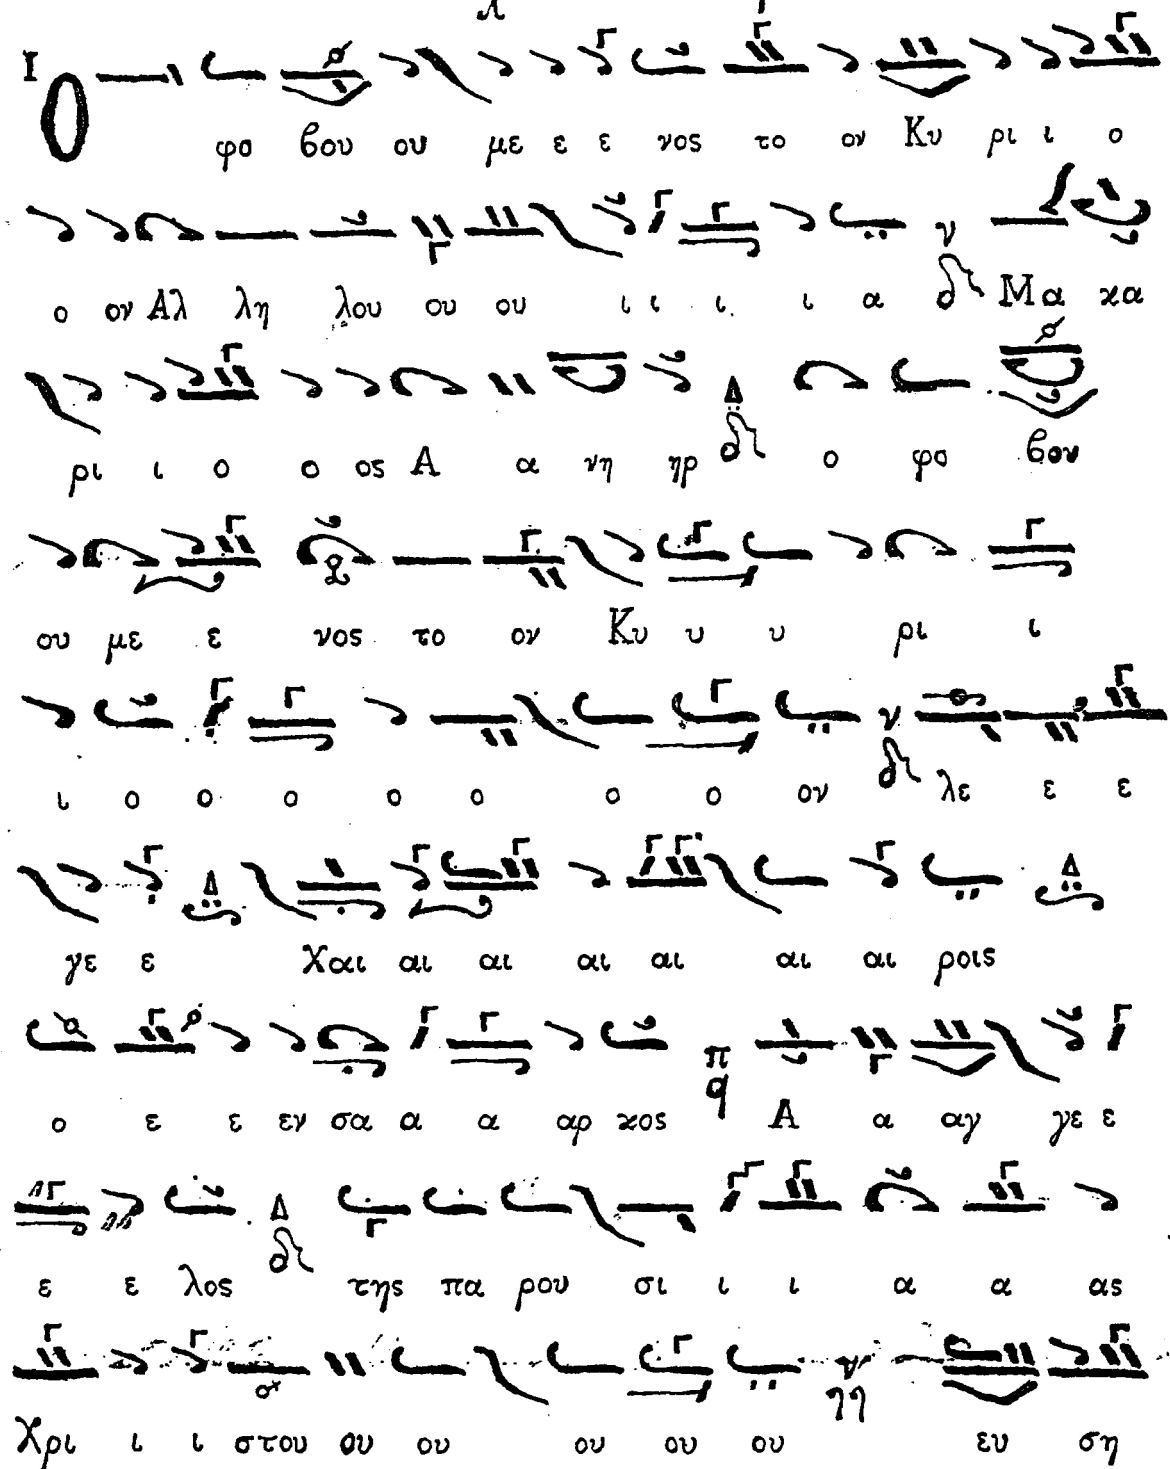 Ο φο βου ου με ε ε νος το ον Κυ ρι ι ο
ο ον Αλ λη λου ου ου ι ι ι ι α Μα κα
ρι ι ο ο ος Α α νη ηρ ο φο βου
ου με ε νος το ον Κυ υ υ ρι ι
ι ο ο ο ο ο ο ο ον λε ε ε
γε ε Χαι αι αι αι αι αι αι ροις
ο ε ε εν σα α α αρ κος Α α αγ γε ε
ε ε λος της πα ρου σι ι ι α α ας
Χρι ι ι στου ου ου ου ου ου ευ ση